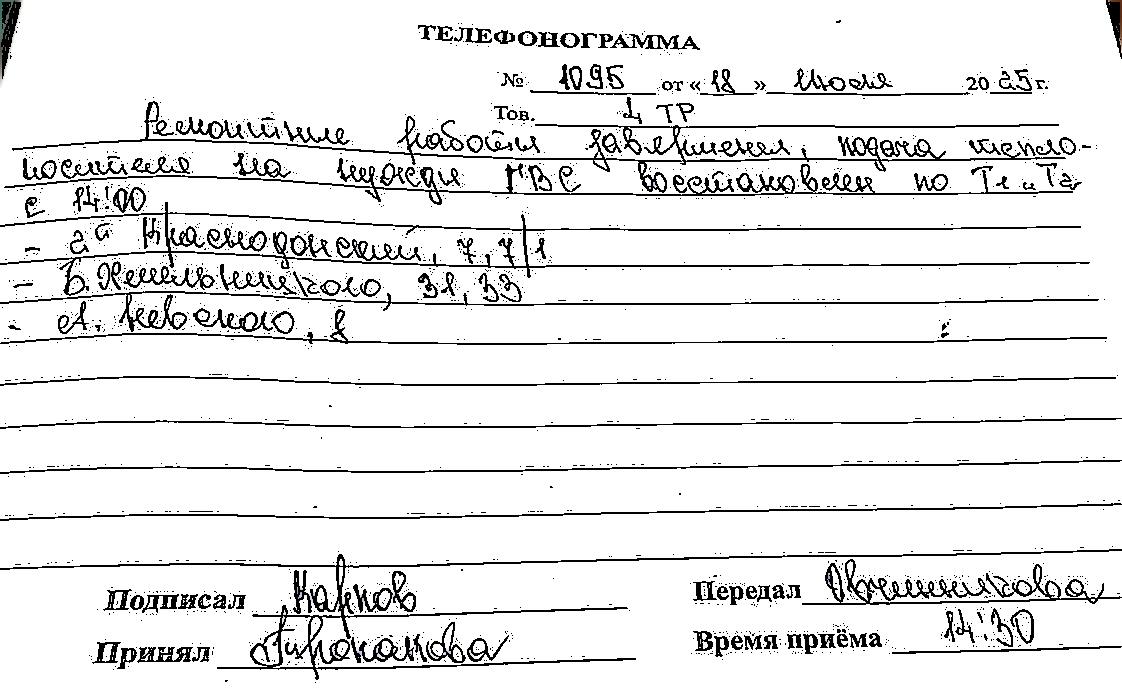 ТЕЛЕФОНОГРАММА
№ 1095 от « 18 » июля 20 25 г.
Тов. 4 ТР
Ремонтные работы завершены, подача тепло-
носителя на нужды ГВС восстановлен по Т1 и Т2
с 14:00
- 2й Краснодонский, 7, 7/1
- Б. Хмельницкого, 31, 33
- А. Невского, 8
Подписал Карпов
Передал Овчинникова
Принял
Время приёма 14:30